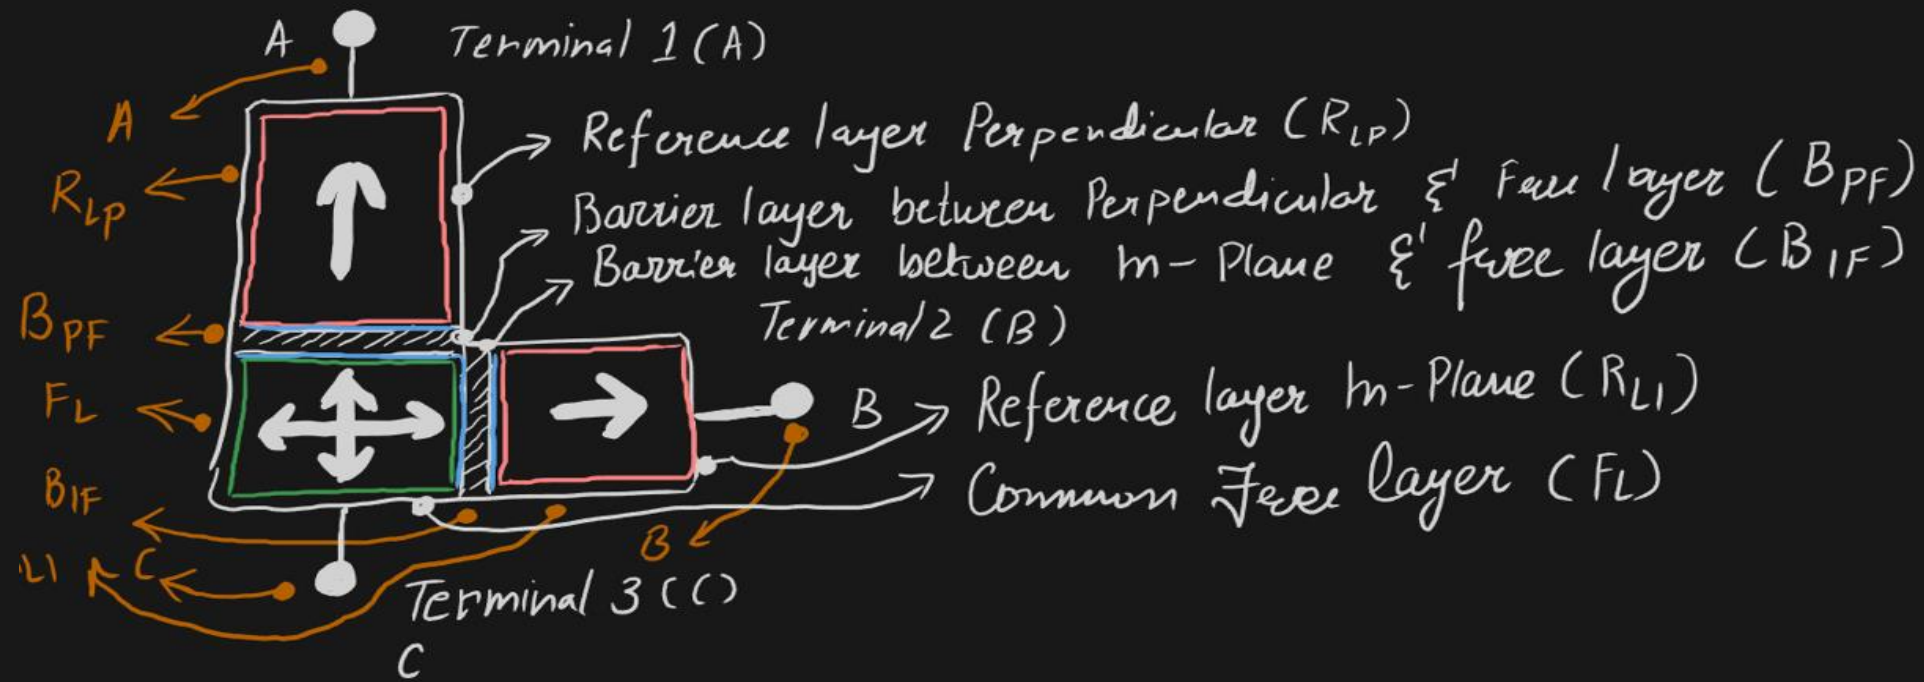 A
Terminal 1 (A)
A
Reference layer Perpendicular (RLP)
RLP
Barrier layer between Perpendicular & Free layer (BPF)
Barrier layer between In-Plane & free layer (BIF)
BPF
Terminal 2 (B)
FL
B
Reference layer In-Plane (RLI)
BIF
Common Free layer (FL)
B
LI
C
Terminal 3 (C)
C